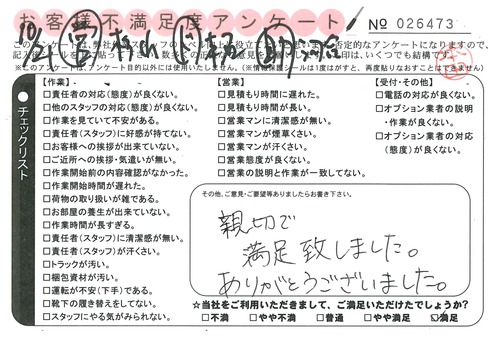 お客様不満足度アンケート
No 026473
チェックリスト
【作業】
□責任者の対応(態度)が良くない。
□他のスタッフの対応(態度)が良くない。
□作業を見ていて不安がある。
□責任者(スタッフ)に好感が持てない。
□お客様への挨拶が出来ていない。
□ご近所への挨拶・気遣いが無い。
□作業開始前の内容確認がなかった。
□作業開始時間が遅れた。
□荷物の取り扱いが雑である。
□お部屋の養生が出来ていない。
□作業時間が長すぎる。
□責任者(スタッフ)に清潔感が無い。
□責任者(スタッフ)が汗くさい。
□トラックが汚い。
□梱包資材が汚い。
□運転が不安(下手)である。
□靴下の履き替えをしてない。
□スタッフにやる気がみられない。
【営業】
□見積もり時間に遅れた。
□見積もり時間が長い。
□営業マンに清潔感が無い。
□営業マンが煙草くさい。
□営業マンが汗くさい。
□営業態度が良くない。
□営業の説明と作業が一致してない。
【受付・その他】
□電話の対応が良くない。
□オプション業者の説明
・作業が良くない。
□オプション業者の対応
(態度)が良くない。
その他、ご意見・ご要望等ありましたらお書き下さい。
親切で
満足致しました。
ありがとうございました。
☆当社をご利用いただきまして、ご満足いただけたでしょうか?
□不満 □やや不満 □普通 □やや満足 ☑満足